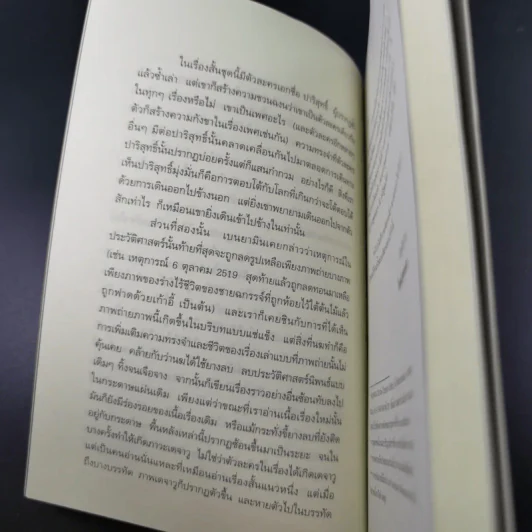 ในเรื่องสั้นชุดนี้มีตัวละครเอกชื่อ ปาริสุทธิ์
แล้วซ้ำเล่า แต่เขาก็สร้างความชวนฉงนว่าเขาเป็นตัวละครเดียวกัน
ในทุกๆ เรื่องหรือไม่ เขาเป็นเพศอะไร (และตัวละคร
ตัวก็สร้างความกังขาในเรื่องเพศเช่นกัน) ความทรงจำที่ตัวละคร
อื่นๆ มีต่อปาริสุทธิ์นั้นคลาดเคลื่อนกันไปมาตลอดการเดินทาง
ปาริสุทธิ์นั้นปรากฏบ่อยครั้งแต่ก็แสนกำกวม อย่างไรก็ดี สิ่งที่เรา
เห็นปาริสุทธิ์มุ่งมั่นก็คือการตอบโต้กับโลกที่เกินกว่าจะโต้ตอบได้
ด้วยการเดินออกไปข้างนอก แต่ยิ่งเขาพยายามเดินออกไปจากตัว
สักเท่าไร ก็เหมือนเขายิ่งเดินเข้าไปข้างในเท่านั้น
ส่วนที่สองนั้น เบนยามินเคยกล่าวว่าเหตุการณ์ใน
ประวัติศาสตร์นั้นท้ายที่สุดจะถูกลดรูปเหลือเพียงภาพถ่ายบางภาพ
(เช่น เหตุการณ์ 6 ตุลาคม 2519 สุดท้ายแล้วถูกลดทอนมาเหลือ
เพียงภาพของร่างไร้ชีวิตของชายฉกรรจ์ที่ถูกห้อยไว้ใต้ต้นไม้แล้ว
ถูกฟาดด้วยเก้าอี้ เป็นต้น) และเราก็เคยชินกับการที่ได้เห็น
ภาพถ่ายภาพนี้เกิดขึ้นในบริบทแบบแช่แข็ง แต่สิ่งที่นฆทำก็คือ
การเพิ่มเติมความทรงจำและชีวิตของเรื่องเล่าแบบที่ภาพถ่ายนั้นไม่
คุ้นเคย คล้ายกับว่านฆได้ใช้ยางลบ ลบประวัติศาสตร์นิพนธ์แบบ
เดิมๆ ทิ้งจนเจือจาง จากนั้นก็เขียนเรื่องราวอย่างอื่นซ้อนทับลงไป
ในกระดาษแผ่นเดิม เพียงแต่ว่าขณะที่เราอ่านเนื้อเรื่องใหม่นั้น
มันก็ยังมีร่องรอยของเนื้อเรื่องเดิม หรือแม้กระทั่งขี้ยางลบที่ยังติด
อยู่กับกระดาษ พื้นหลังเหล่านี้ปรากฏซ้อนขึ้นมาเป็นระยะ จนใน
บางครั้งทำให้เกิดภาวะเดจาวู ไม่ใช่ว่าตัวละครในเรื่องได้เกิดเดจาวู
แต่เป็นคนอ่านนั่นแหละที่เหมือนอ่านเรื่องสั้นแนวหนึ่ง แต่เมื่อ
ถึงบางบรรทัด ภาพเดจาวูก็ปรากฏตัวขึ้น และหายตัวไปในบรรทัด